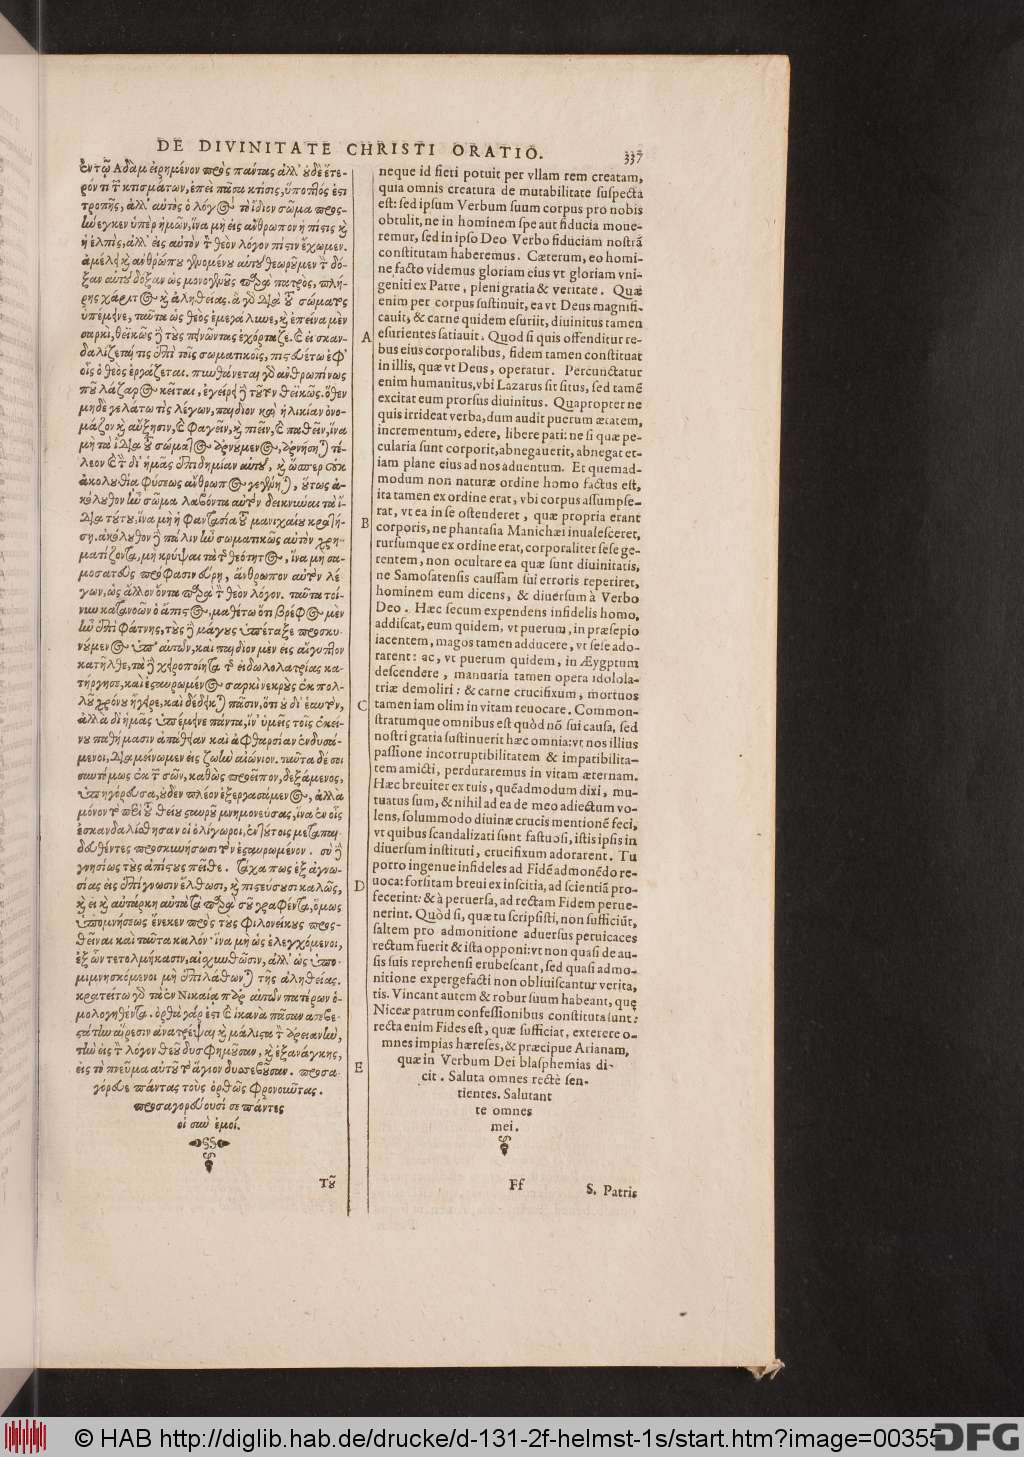 DE DIVINITATE CHRISTI ORATIO. 337
ἐν τῷ Ἀδὰμ εἰρημένον πρὸς πάντας ἀλλ' οὐδὲ ἕτε-
ρόν τι τῶν κτισμάτων, ἐπεὶ πᾶσα κτίσις, ὕποπτός ἐστι
τροπῆς, ἀλλ' αὐτὸς ὁ λόγος τὸ ἴδιον σῶμα προς-
ήνεγκεν ὑπὲρ ἡμῶν, ἵνα μὴ εἰς ἄνθρωπον ἡ πίστις καὶ
ἡ ἐλπὶς, ἀλλ' εἰς αὐτὸν τὸν θεὸν λόγον πίστιν ἔχωμεν.
ἀμέλει καὶ ἀνθρώπου γενομένου αὐτοῦ θεωροῦμεν τὴν δό-
ξαν αὐτοῦ δόξαν ὡς μονογενοῦς παρὰ πατρὸς, πλή-
ρης χάριτος καὶ ἀληθείας. ἃ γὰρ διὰ τοῦ σώματος
ὑπέμεινε, ταῦτα ὡς θεὸς ἐμεγάλυνε, καὶ ἐπείνα μὲν
σαρκὶ, θεϊκῶς δὲ τοὺς πεινῶντας ἐχόρταζε. καὶ εἰ σκαν-
δαλίζεταί τις ἐπὶ τοῖς σωματικοῖς, πιστευέτω ἐφ'
οἷς ὁ θεὸς ἐργάζεται. πυνθάνεται γὰρ ἀνθρωπίνως
ποῦ λάζαρος κεῖται, ἐγείρει δὲ τοῦτον θεϊκῶς. ὅθεν
μηδὲ γελάτω τὶς λέγων, παιδίον καὶ ἡλικίαν ὀνο-
μάζον καὶ αὔξησιν, καὶ φαγεῖν, καὶ πιεῖν, καὶ παθεῖν, ἵνα
μὴ τὰ ἴδια τοῦ σώματος ἀρνούμενος, ἀρνήσηται τέ-
λεον καὶ τὴν δι' ἡμᾶς ἐπιδημίαν αὐτοῦ, καὶ ὥσπερ οὐκ
ἀκολουθίᾳ φύσεως ἄνθρωπος γεγένηται, οὕτως ἀ-
κόλουθον ἦν σῶμα λαβόντα αὐτὸν δεικνύναι τὰ ἴ-
δια τούτου, ἵνα μὴ ἡ φαντασία τοῦ μανιχαίου κρατή-
σῃ. ἀκόλουθον δὲ πάλιν ἦν σωματικῶς αὐτὸν χρη-
ματίζοντα, μὴ κρύψαι τὰ τῆς θεότητος, ἵνα μὴ σα-
μοσατεὺς πρόφασιν εὕρῃ, ἄνθρωπον αὐτὸν λέ-
γων, ὡς ἄλλον ὄντα παρὰ τὸν θεὸν λόγον. ταῦτα τοί-
νυν κατανοῶν ὁ ἄπιστος, μαθέτω ὅτι βρέφος μὲν
ἦν ἐπὶ φάτνης, τοὺς δὲ μάγους ὑπέταξε προσκυ-
νούμενος ὑπ' αὐτῶν, καὶ παιδίον μὲν εἰς αἴγυπτον
κατῆλθε, τὰ δὲ χειροποίητα τῆς εἰδωλολατρίας κα-
τήργησε, καὶ ἐσταυρωμένος σαρκὶ νεκροὺς ἐκ πολ-
λοῦ χρόνου ἤγειρε, καὶ δέδεικται πᾶσιν, ὅτι οὐ δι' ἑαυτὸν,
ἀλλὰ δι' ἡμᾶς ὑπέμεινε πάντα, ἵν' ὑμεῖς τοῖς ἐκεί-
νου παθήμασιν ἀπάθειαν καὶ ἀφθαρσίαν ἐνδυσά-
μενοι, διαμείνωμεν εἰς ζωὴν αἰώνιον. ταῦτα δέ σοι
συντόμως ἐκ τῶν σῶν, καθὼς προεῖπον, δεξάμενος,
ὑπηγόρευσα, οὐδὲν πλέον ἐξεργασάμενος, ἀλλὰ
μόνον τὸ περὶ τοῦ θείου σταυροῦ μνημονεύσας, ἵνα ἐν οἷς
ἐσκανδαλίσθησαν οἱ ὀλίγωροι, ἐν τούτοις μεταπαι-
δευθέντες προσκυνήσωσι τὸν ἐσταυρωμένον. σὺ δὲ
γνησίως τοὺς ἀπίστους πεῖθε. τάχα πως ἐξ ἀγνω-
σίας εἰς ἐπίγνωσιν ἔλθωσι, καὶ πιστεύσουσι καλῶς,
καὶ εἰ καὶ αὐτάρκη αὐτὰ τὰ παρὰ σοῦ γραφέντα, ὅμως
ὑπομνήσεως ἕνεκεν πρὸς τοὺς φιλονείκους προς-
θεῖναι καὶ ταῦτα καλόν· ἵνα μὴ ὡς ἐλεγχόμενοι,
ἐξ ὧν τετολμήκασιν, αἰσχυνθῶσιν, ἀλλ' ὡς ὑπο-
μιμνησκόμενοι μὴ ἐπιλάθωνται τῆς ἀληθείας.
κρατείτω γὰρ τὰ ἐν Νικαίᾳ παρὰ αὐτῶν πατέρων ὁ-
μολογηθέντα. ὀρθὰ γάρ ἐστι καὶ ἱκανὰ πᾶσαν ἀσεβε-
στάτην αἵρεσιν ἀνατρέψαι καὶ μάλιστα τὴν ἀρειανὴν,
τὴν εἰς τὸν λόγον θεοῦ δυσφημοῦσαν, καὶ ἐξ ἀνάγκης,
εἰς τὸ πνεῦμα αὐτοῦ τὸ ἅγιον δυσσεβοῦσαν. προσα-
γόρευε πάντας τοὺς ὀρθῶς φρονοῦντας.
προσαγορεύουσί σε πάντες
οἱ σὺν ἐμοί.
Τοῦ
A
B
C
D
E
neque id fieri potuit per vllam rem creatam,
quia omnis creatura de mutabilitate suspecta
est: sed ipsum Verbum suum corpus pro nobis
obtulit, ne in hominem spe aut fiducia moue-
remur, sed in ipso Deo Verbo fiduciam nostrã
constitutam haberemus. Cæterum, eo homi-
ne facto videmus gloriam eius vt gloriam vni-
geniti ex Patre, pleni gratia & veritate. Quæ
enim per corpus sustinuit, ea vt Deus magnifi-
cauit, & carne quidem esuriit, diuinitus tamen
esurientes satiauit. Quod si quis offenditur re-
bus eius corporalibus, fidem tamen constituat
in illis, quæ vt Deus, operatur. Percunctatur
enim humanitus, vbi Lazarus sit situs, sed tamẽ
excitat eum prorsus diuinitus. Quapropter ne
quis irrideat verba, dum audit puerum ætatem,
incrementum, edere, libere pati: ne si quæ pe-
cularia sunt corporit, abnegauerit, abnegat et-
iam plane eius ad nos aduentum. Et quemad-
modum non naturæ ordine homo factus est,
ita tamen ex ordine erat, vbi corpus assumpse-
rat, vt ea in se ostenderet, quæ propria erant
corporis, ne phantasia Manichæi inualesceret,
rursumque ex ordine erat, corporaliter sese ge-
rentem, non ocultare ea quæ sunt diuinitatis,
ne Samosatensis caussam sui erroris reperiret,
hominem eum dicens, & diuersum à Verbo
Deo. Hæc secum expendens infidelis homo,
addiscat, eum quidem, vt puerum, in præsepio
iacentem, magos tamen adducere, vt sese ado-
rarent: ac, vt puerum quidem, in Ægyptum
descendere, manuaria tamen opera idolola-
triæ demoliri: & carne crucifixum, mortuos
tamen iam olim in vitam reuocare. Common-
stratumque omnibus est quòd nõ sui causa, sed
nostri gratia sustinuerit hæc omnia: vt nos illius
passione incorruptibilitatem & impatibilita-
tem amicti, perduraremus in vitam æternam.
Hæc breuiter ex tuis, quẽadmodum dixi, mu-
tuatus sum, & nihil ad ea de meo adiectum vo-
lens, solummodo diuinæ crucis mentionẽ feci,
vt quibus scandalizati sunt fastuosi, istis ipsis in
diuersum instituti, crucifixum adorarent. Tu
porro ingenue infideles ad Fidẽ admonẽdo re-
uoca: forsitam breui ex inscitia, ad scientiã pro-
fecerint: & à peruersa, ad rectam Fidem perue-
nerint. Quòd si, quæ tu scripsisti, non sufficiũt,
saltem pro admonitione aduersus peruicaces
rectum fuerit & ista opponi: vt non quasi de au-
sis suis reprehensi erubescant, sed quasi admo-
nitione expergefacti non obliuiscantur verita-
tis. Vincant autem & robur suum habeant, quę
Niceæ patrum confessionibus constituta sunt:
recta enim Fides est, quæ sufficiat, exterere o-
mnes impias hæreses, & præcipue Arianam,
quæ in Verbum Dei blasphemias di-
cit. Saluta omnes rectè sen-
tientes. Salutant
te omnes
mei.
Ff
S. Patris
© HAB http://diglib.hab.de/drucke/d-131-2f-helmst-1s/start.htm?image=00355
DFG